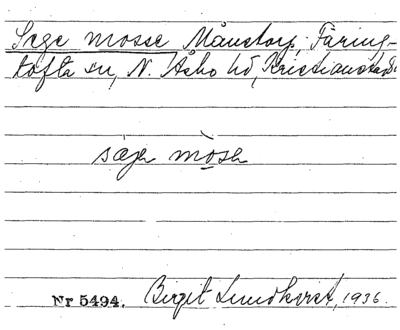 Sege mosse Månstorp, Färing-
tofta sn, N. Åsbo hd, Kristianstads
säge mosse
Nr 5494. Birgit Lundkvist, 1936.